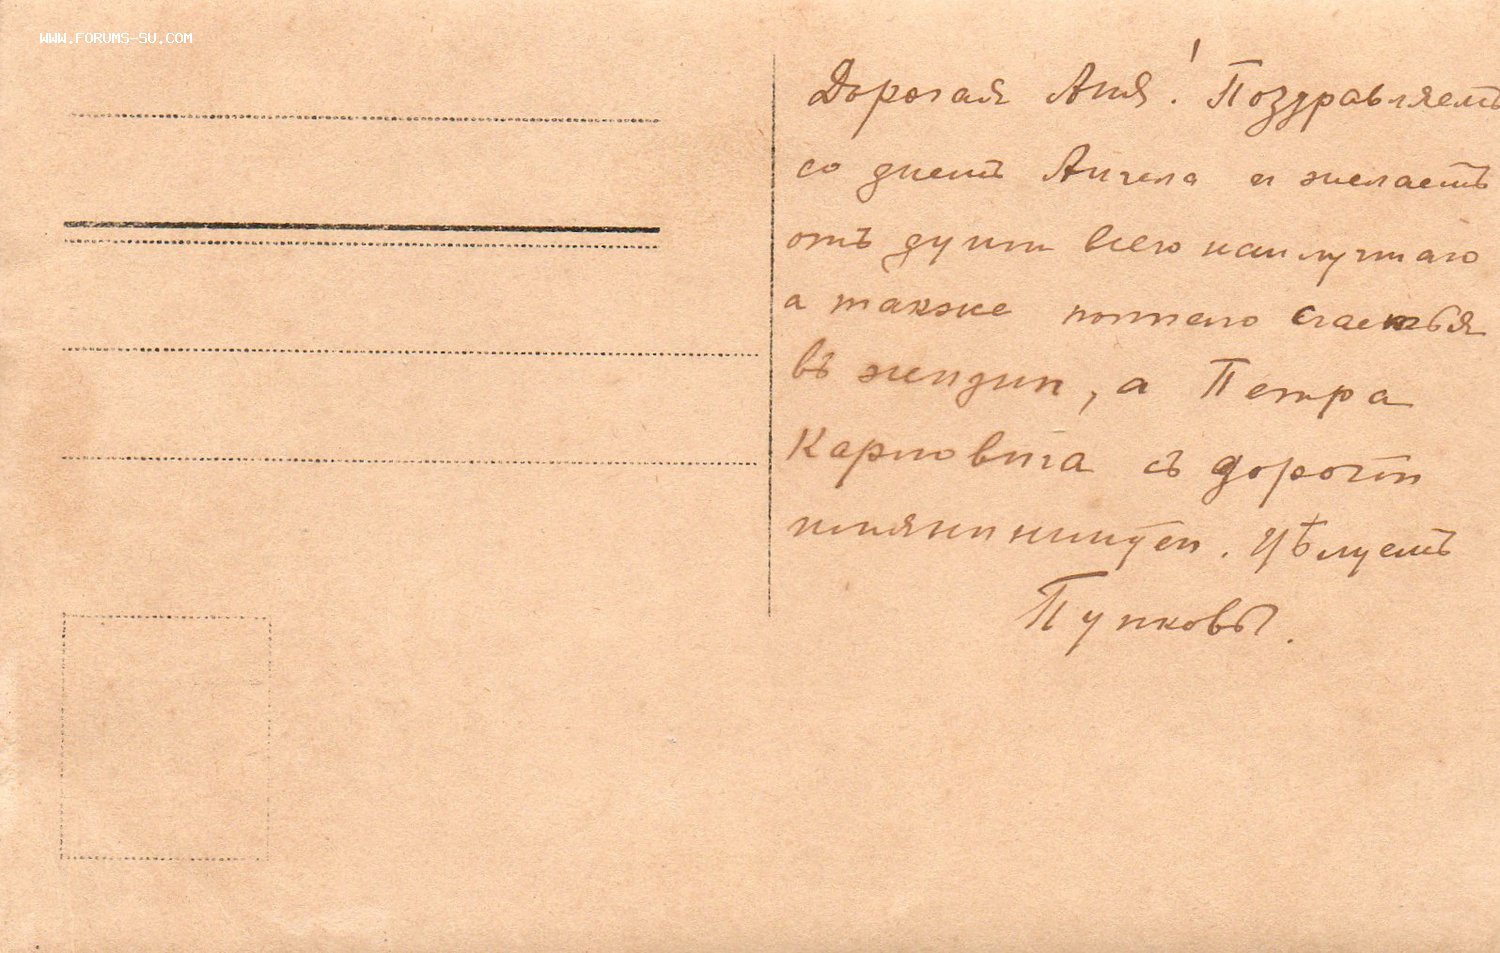 WWW.FORUMS-SU.COM
Дорогая Аня! Поздравляемъ
со днемъ Ангела и желаемъ
отъ души всего наилучшаго
а также полнаго счастья
въ жизни, а Петра
Карповича съ дорогой
имянинницей. Цѣлуемъ
Пупковы.